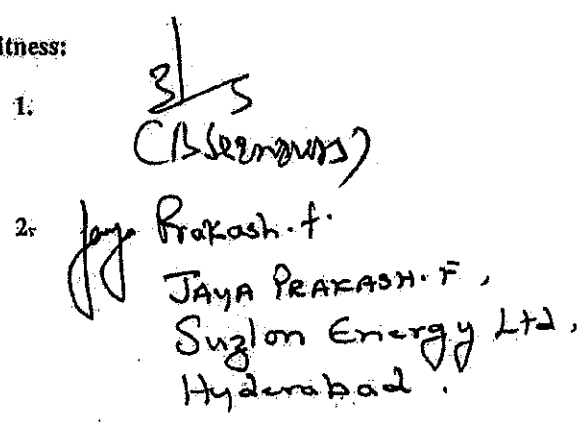 itness:
1.
2. Jaya Prakash.f.
JAYA PRAKASH.F,
Suzlon Energy Ltd,
Hyderabad.